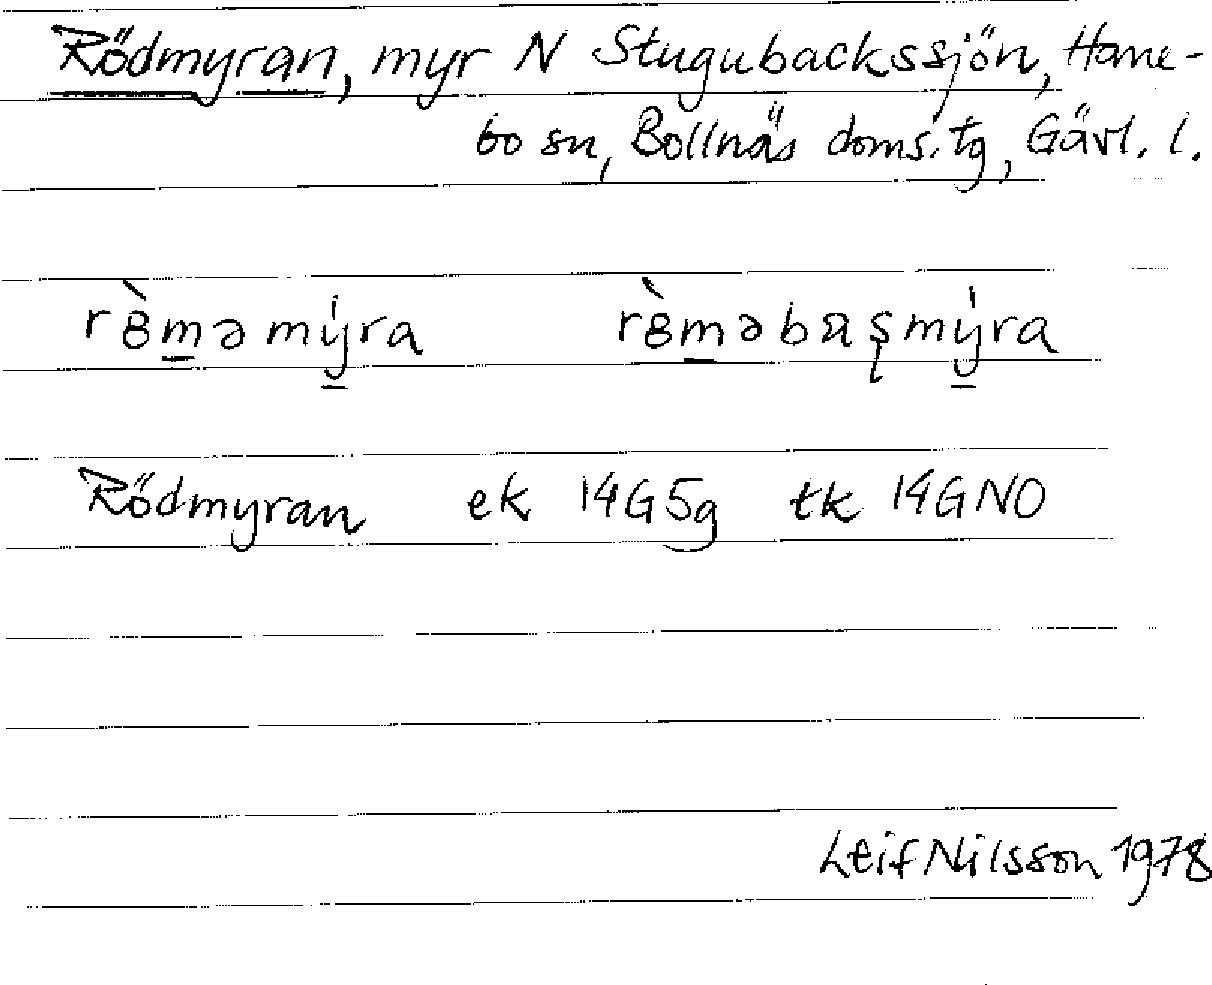 Rödmyran, myr N Stugubackssjön, Hane-
bo sn, Bollnäs doms.tg, Gävl. l.
rȣ̀m̲əmý̲ra rȣ̀m̲əbaʂmý̲ra
Rödmyran ek 14G5g tk 14GNO
Leif Nilsson 1978